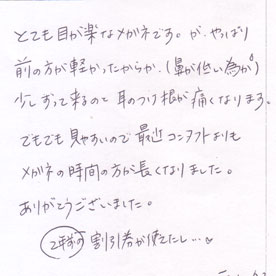 とても目が楽なメガネです。が、やっぱり
前の方が軽かったからか、(鼻が低い為か?)
少しずって来るので耳のつけ根が痛くなります。
でもでも見やすいので最近コンタクトよりも
メガネの時間の方が長くなりました。
ありがとうございました。
割引券が使えたし…♡